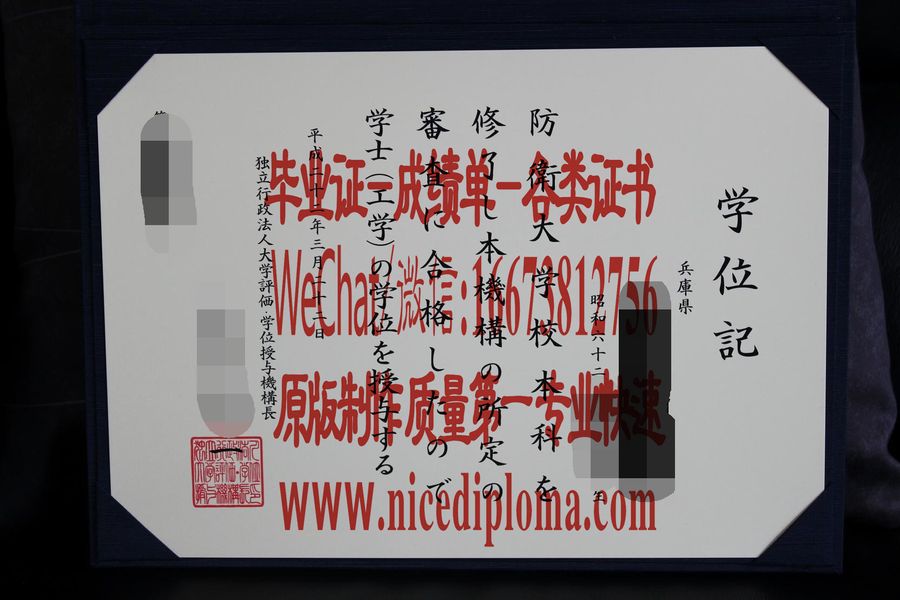 学位記
兵庫県
昭和六十二
生
防衛大学校本科を
修了し本機構の所定の
審査に合格したので
学士(工学)の学位を授与する
平成二十二年三月二十二日
独立行政法人大学評価・学位授与機構長
毕业证–成绩单–各类证书
WeChat/微信:16673812756
原版制作 质量第一 专业快速
www.nicediploma.com